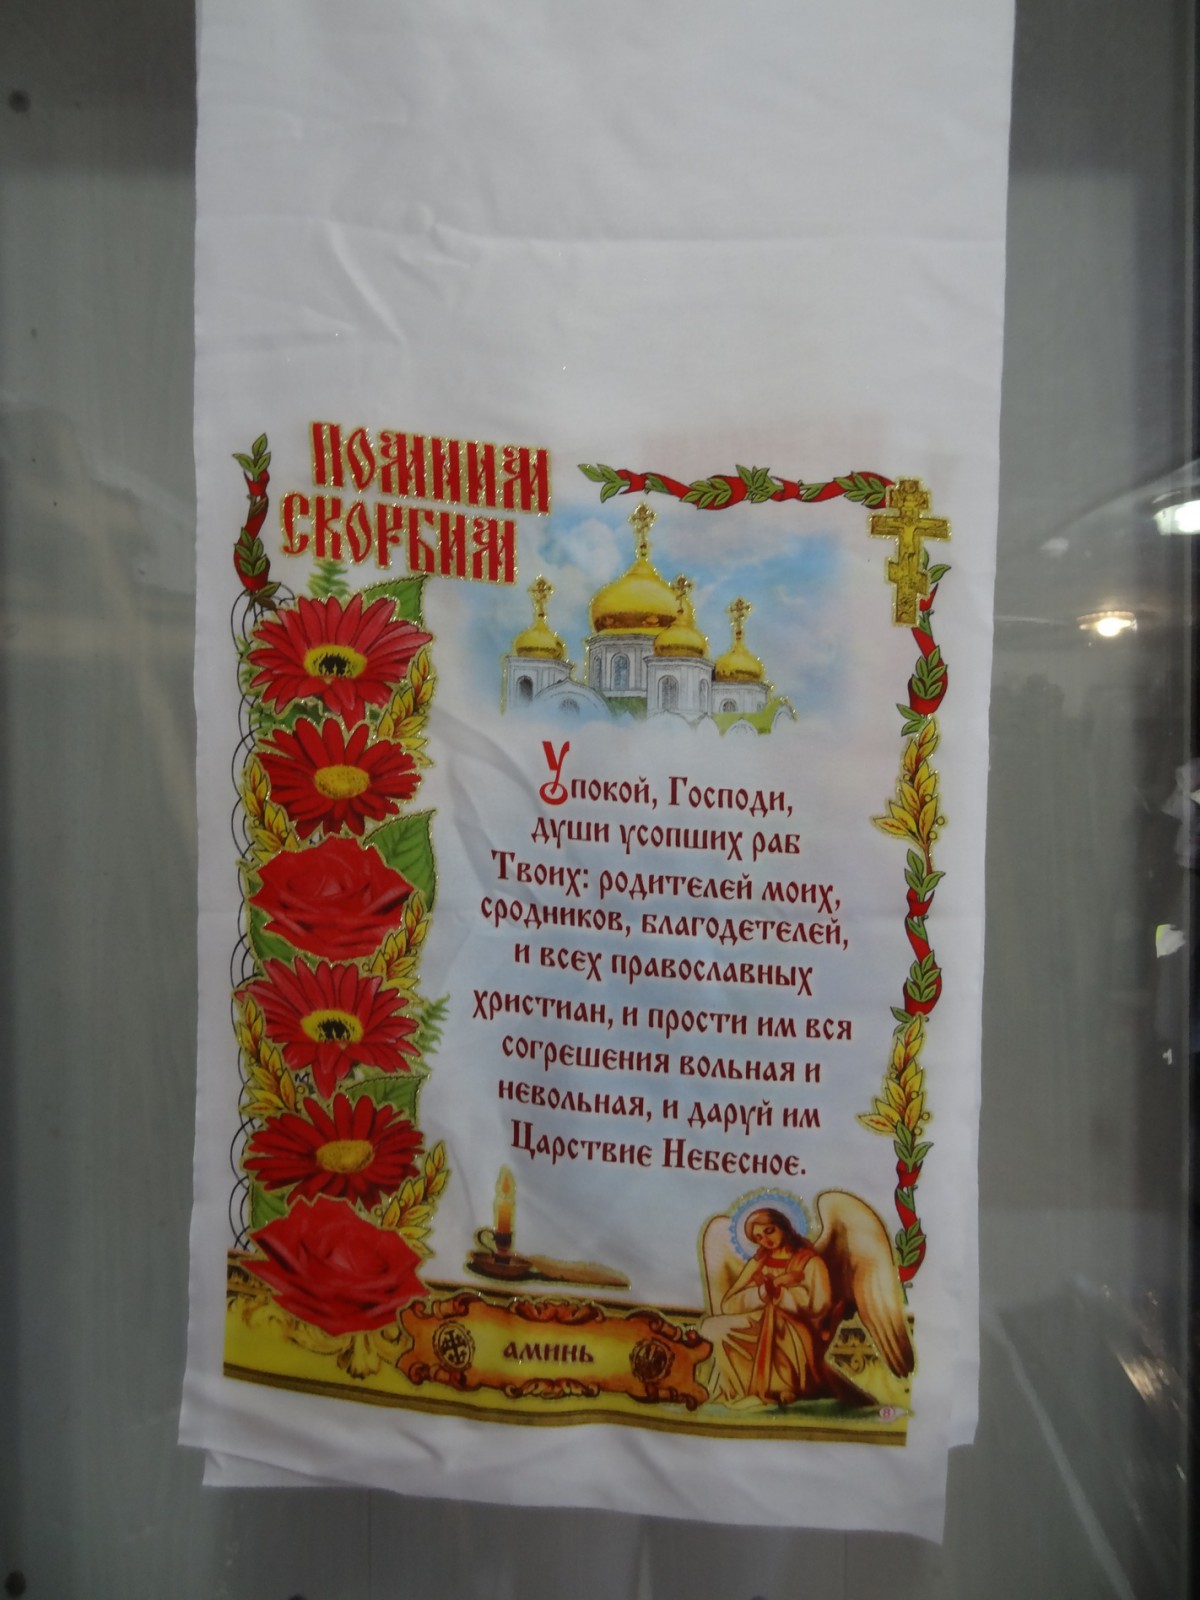 ПОМНИМ
СКОРБИМ
Упокой, Господи,
души усопших раб
Твоих: родителей моих,
сродников, благодетелей,
и всех православных
христиан, и прости им вся
согрешения вольная и
невольная, и даруй им
Царствие Небесное.
аминь